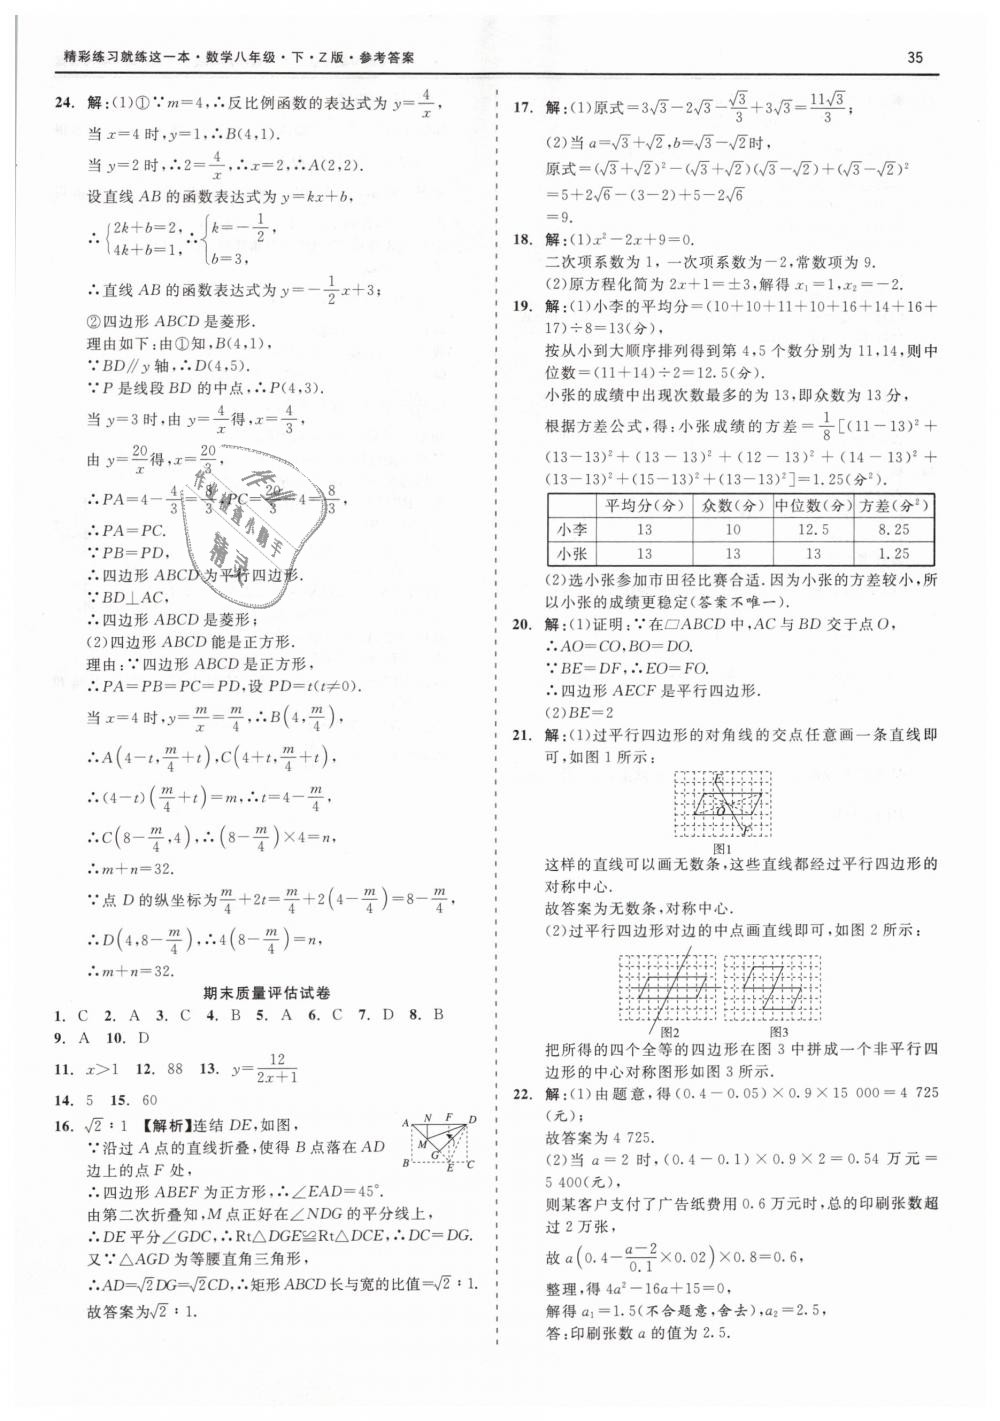 精彩练习就练这一本·数学八年级·下·Z版·参考答案
35
24. 解:(1)①∵m=4,∴反比例函数的表达式为 y=4/x,
当 x=4 时,y=1,∴B(4,1).
当 y=2 时,∴2=4/x,∴x=2,∴A(2,2).
设直线 AB 的函数表达式为 y=kx+b,
∴{2k+b=2, 4k+b=1,∴{k=-1/2, b=3,
∴直线 AB 的函数表达式为 y=-1/2x+3;
②四边形 ABCD 是菱形.
理由如下:由①知,B(4,1),
∵BD∥y 轴,∴D(4,5).
∵P 是线段 BD 的中点,∴P(4,3).
当 y=3 时,由 y=4/x得,x=4/3,
由 y=20/x得,x=20/3,
∴PA=4-4/3=8/3,PC=20/3-4=8/3,
∴PA=PC.
∵PB=PD,
∴四边形 ABCD 为平行四边形.
∵BD⊥AC,
∴四边形 ABCD 是菱形;
(2)四边形 ABCD 能是正方形.
理由:∵四边形 ABCD 是正方形,
∴PA=PB=PC=PD,设 PD=t(t≠0).
当 x=4 时,y=m/x=m/4,∴B(4,m/4),
∴A(4-t,m/4+t),C(4+t,m/4+t),
∴(4-t)(m/4+t)=m,∴t=4-m/4,
∴C(8-m/4,4),∴(8-m/4)×4=n,
∴m+n=32.
∵点 D 的纵坐标为m/4+2t=m/4+2(4-m/4)=8-m/4,
∴D(4,8-m/4),∴4(8-m/4)=n,
∴m+n=32.
期末质量评估试卷
1. C 2. A 3. C 4. B 5. A 6. C 7. D 8. B
9. A 10. D
11. x>1 12. 88 13. y=12/(2x+1)
14. 5 15. 60
16. √2∶1 【解析】连结 DE,如图,
∵沿过 A 点的直线折叠,使得 B 点落在 AD
边上的点 F 处,
∴四边形 ABEF 为正方形,∴∠EAD=45°.
由第二次折叠知,M 点正好在∠NDG 的平分线上,
∴DE 平分∠GDC,∴Rt△DGE≌Rt△DCE,∴DC=DG.
又∵△AGD 为等腰直角三角形,
∴AD=√2DG=√2CD,∴矩形 ABCD 长与宽的比值=√2∶1.
故答案为√2∶1.
A N F D
M
G
B E C
作业
作业检查小助手
精灵
17. 解:(1)原式=3√3-2√3-√3/3+3√3=11√3/3;
(2)当 a=√3+√2,b=√3-√2时,
原式=(√3+√2)²-(√3+√2)(√3-√2)+(√3-√2)²
=5+2√6-(3-2)+5-2√6
=9.
18. 解:(1)x²-2x+9=0.
二次项系数为 1, 一次项系数为-2,常数项为 9.
(2)原方程化简为 2x+1=±3,解得 x₁=1,x₂=-2.
19. 解:(1)小李的平均分=(10+10+11+10+16+14+16+
17)÷8=13(分),
按从小到大顺序排列得到第 4,5 个数分别为 11,14,则中
位数=(11+14)÷2=12.5(分).
小张的成绩中出现次数最多的为 13,即众数为 13 分,
根据方差公式,得:小张成绩的方差=1/8[(11-13)²+
(13-13)²+(13-13)²+(12-13)²+(14-13)²+
(13-13)²+(15-13)²+(13-13)²]=1.25(分²).
平均分(分) 众数(分) 中位数(分) 方差(分²)
小李 13 10 12.5 8.25
小张 13 13 13 1.25
(2)选小张参加市田径比赛合适.因为小张的方差较小,所
以小张的成绩更稳定(答案不唯一).
20. 解:(1)证明:∵在▱ABCD 中,AC 与 BD 交于点 O,
∴AO=CO,BO=DO.
∵BE=DF,∴EO=FO.
∴四边形 AECF 是平行四边形.
(2)BE=2
21. 解:(1)过平行四边形的对角线的交点任意画一条直线即
可,如图 1 所示:
E
O
F
图1
这样的直线可以画无数条,这些直线都经过平行四边形的
对称中心.
故答案为无数条,对称中心.
(2)过平行四边形对边的中点画直线即可,如图 2 所示:
图2 图3
把所得的四个全等的四边形在图 3 中拼成一个非平行四
边形的中心对称图形如图 3 所示.
22. 解:(1)由题意,得(0.4-0.05)×0.9×15 000=4 725
(元);
故答案为 4 725.
(2)当 a=2 时,(0.4-0.1)×0.9×2=0.54 万元=
5 400(元),
则某客户支付了广告纸费用 0.6 万元时,总的印刷张数超
过 2 万张,
故 a(0.4-(a-2)/0.1×0.02)×0.8=0.6,
整理,得 4a²-16a+15=0,
解得 a₁=1.5(不合题意,舍去),a₂=2.5,
答:印刷张数 a 的值为 2.5.